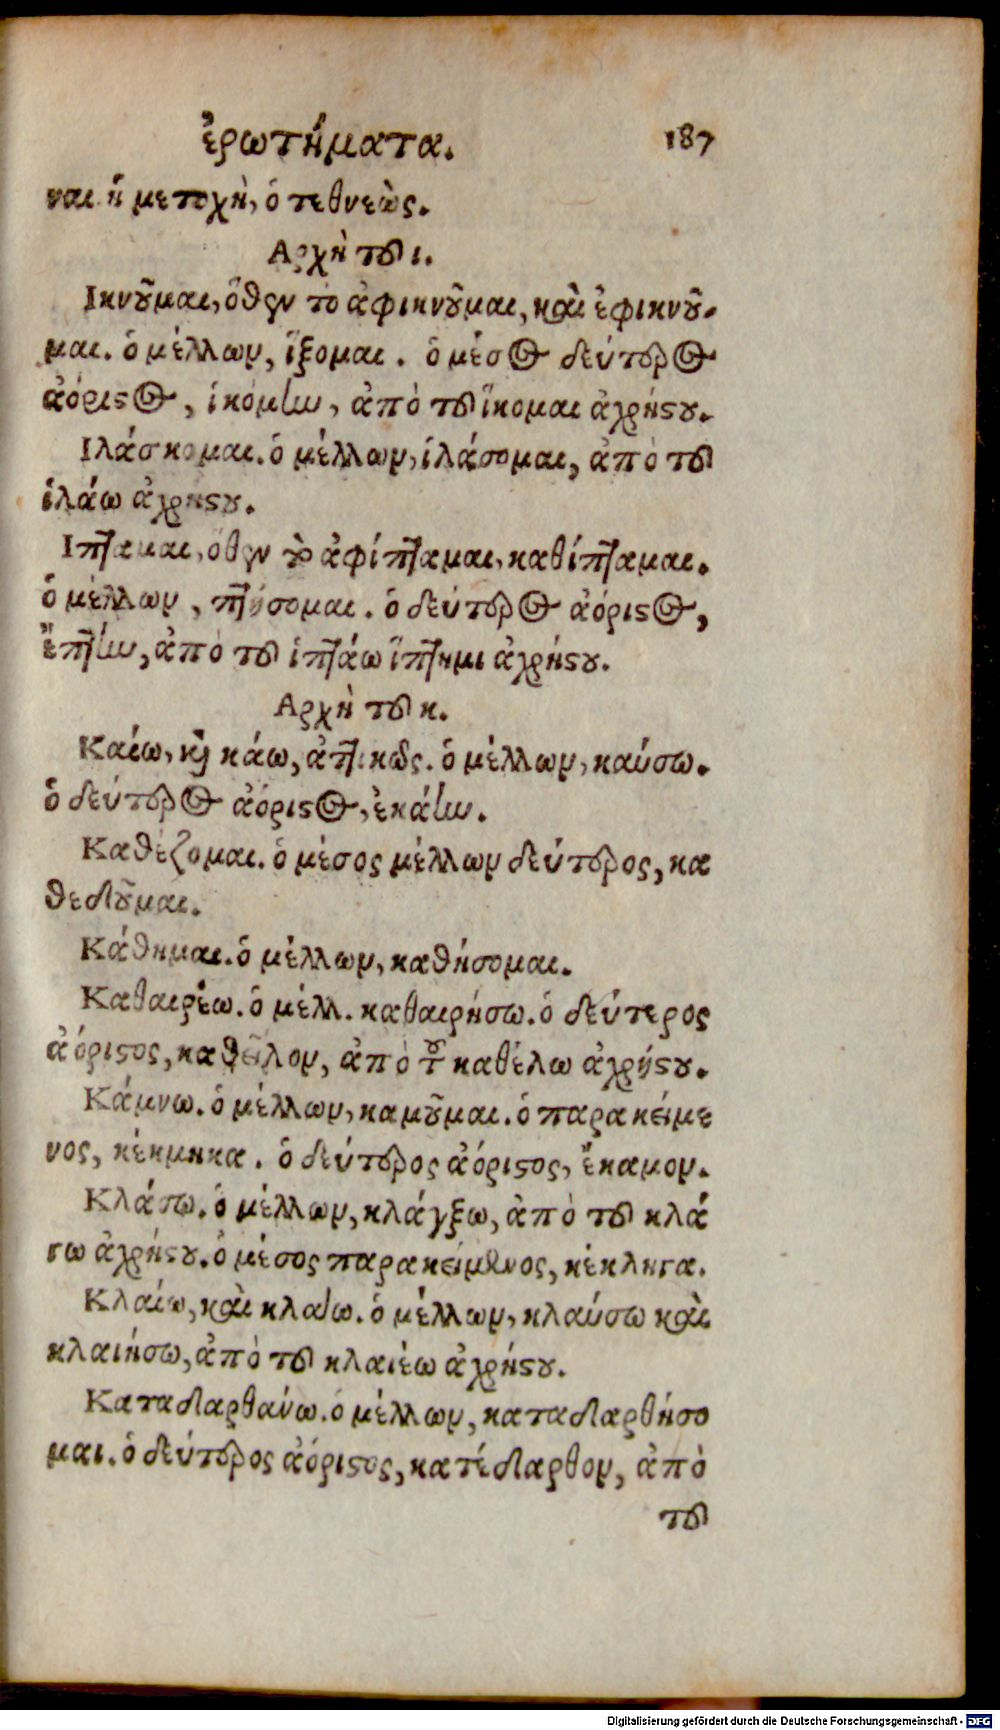 ἐρωτήματα. 187
ναι ἡ μετοχὴ, ὁ τεθνεὼς.
Αρχὴ τοῦ ι.
Ικνοῦμαι, ὅθεν τὸ ἀφικνοῦμαι, καὶ ἐφικνοῦ-
μαι. ὁ μέλλων, ἵξομαι. ὁ μέσος δεύτερος
ἀόριστος, ἱκόμην, ἀπὸ τοῦ ἵκομαι ἀχρήστου.
Ιλάσκομαι. ὁ μέλλων, ἱλάσομαι, ἀπὸ τοῦ
ἱλάω ἀχρήστου.
Ιπταμαι, ὅθεν τὸ ἀφίπταμαι, καθίπταμαι.
ὁ μέλλων, πτήσομαι. ὁ δεύτερος ἀόριστος,
ἔπτην, ἀπὸ τοῦ ἱπτάω ἵπτημι ἀχρήστου.
Αρχὴ τοῦ κ.
Καίω, καὶ κάω, ἀττικῶς. ὁ μέλλων, καύσω.
ὁ δεύτερος ἀόριστος, ἐκάην.
Καθέζομαι. ὁ μέσος μέλλων δεύτερος, κα
θεδοῦμαι.
Κάθημαι. ὁ μέλλων, καθήσομαι.
Καθαιρέω. ὁ μέλλ. καθαιρήσω. ὁ δεύτερος
ἀόριστος, καθεῖλον, ἀπὸ τοῦ καθέλω ἀχρήστου.
Κάμνω. ὁ μέλλων, καμοῦμαι. ὁ παρακείμε
νος, κέκμηκα. ὁ δεύτερος ἀόριστος, ἔκαμον.
Κλάττω. ὁ μέλλων, κλάγξω, ἀπὸ τοῦ κλά
γω ἀχρήστου. ὁ μέσος παρακείμενος, κέκληγα.
Κλαίω, καὶ κλαίω. ὁ μέλλων, κλαύσω καὶ
κλαιήσω, ἀπὸ τοῦ κλαιέω ἀχρήστου.
Καταδαρθάνω. ὁ μέλλων, καταδαρθήσο
μαι. ὁ δεύτερος ἀόριστος, κατέδαρθον, ἀπὸ
τοῦ
Digitalisierung gefördert durch die Deutsche Forschungsgemeinschaft - DFG